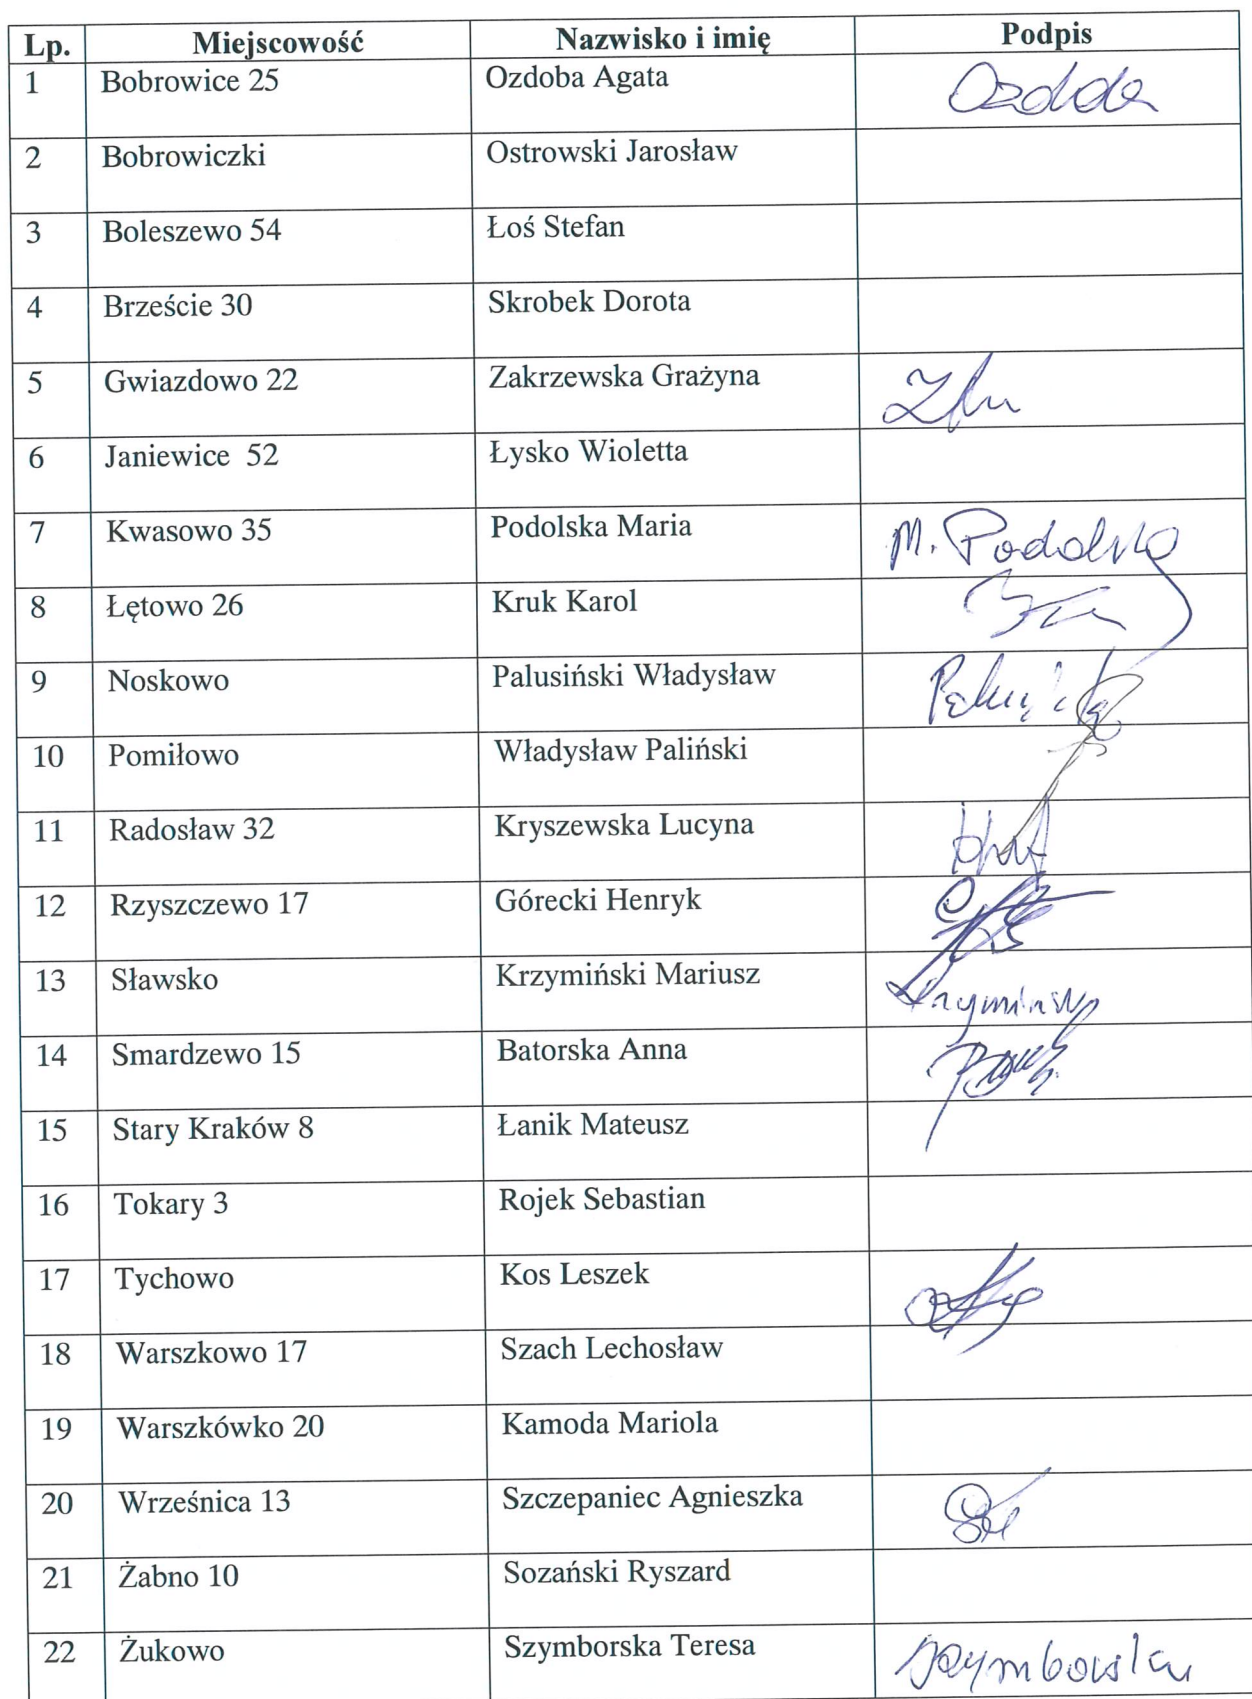 Lp. Miejscowość Nazwisko i imię Podpis
1 Bobrowice 25 Ozdoba Agata Ozdoba
2 Bobrowiczki Ostrowski Jarosław
3 Boleszewo 54 Łoś Stefan
4 Brzeście 30 Skrobek Dorota
5 Gwiazdowo 22 Zakrzewska Grażyna
6 Janiewice 52 Łysko Wioletta
7 Kwasowo 35 Podolska Maria M. Podolska
8 Łętowo 26 Kruk Karol
9 Noskowo Palusiński Władysław
10 Pomiłowo Władysław Paliński
11 Radosław 32 Kryszewska Lucyna
12 Rzyszczewo 17 Górecki Henryk
13 Sławsko Krzymiński Mariusz
14 Smardzewo 15 Batorska Anna
15 Stary Kraków 8 Łanik Mateusz
16 Tokary 3 Rojek Sebastian
17 Tychowo Kos Leszek
18 Warszkowo 17 Szach Lechosław
19 Warszkówko 20 Kamoda Mariola
20 Wrześnica 13 Szczepaniec Agnieszka
21 Żabno 10 Sozański Ryszard
22 Żukowo Szymborska Teresa Szymborska